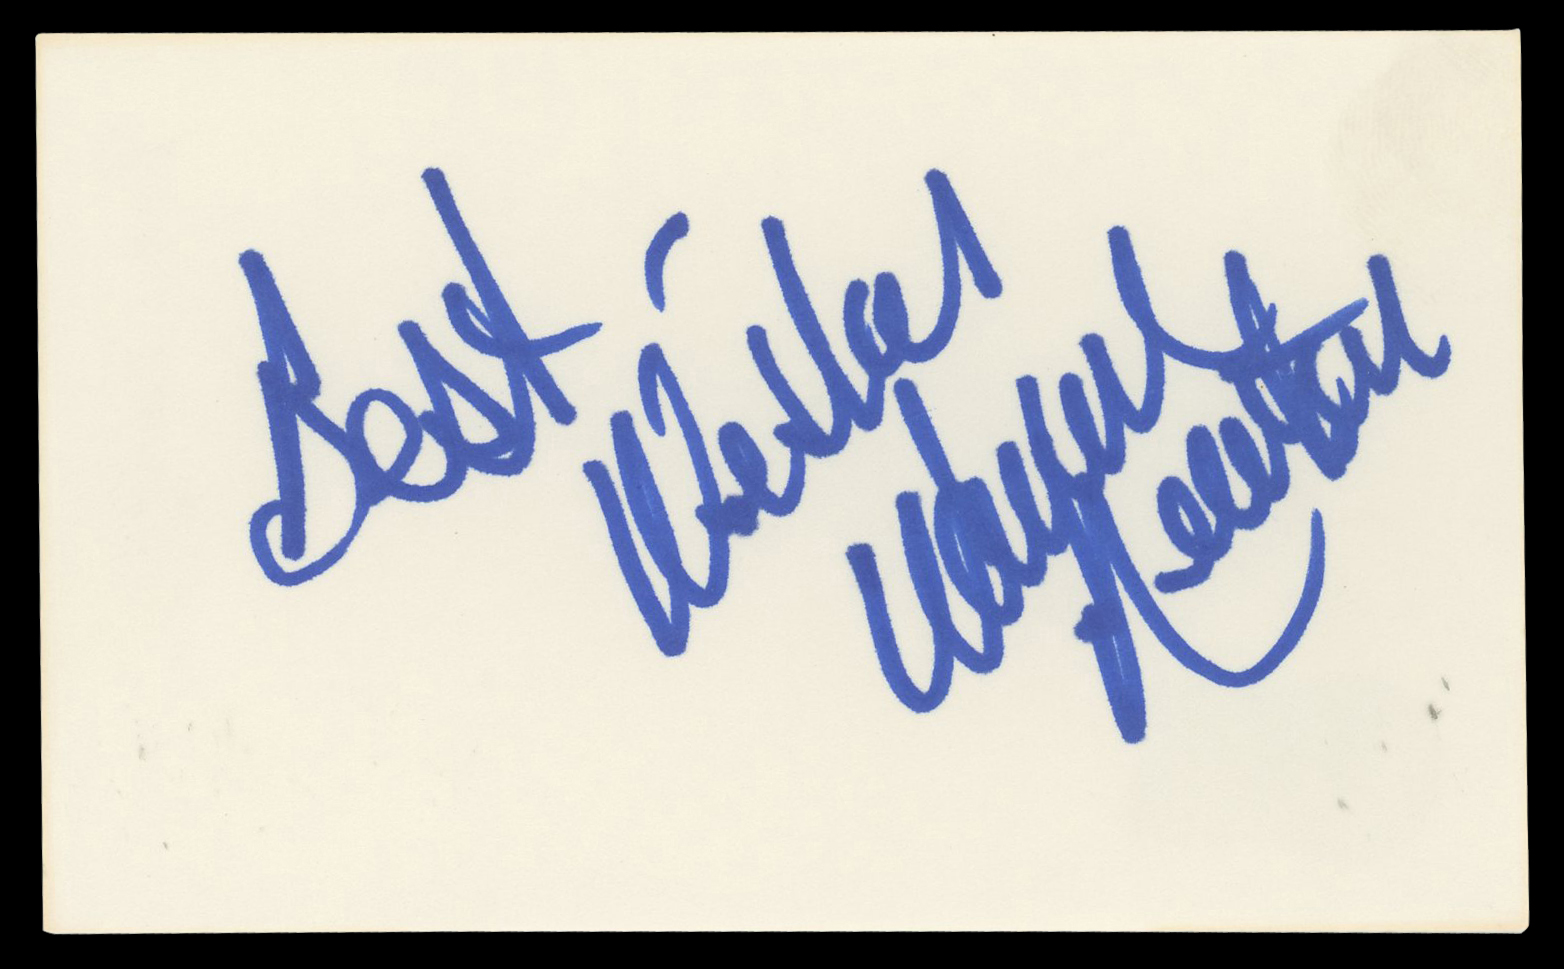 Best Wishes
Wayne Newton